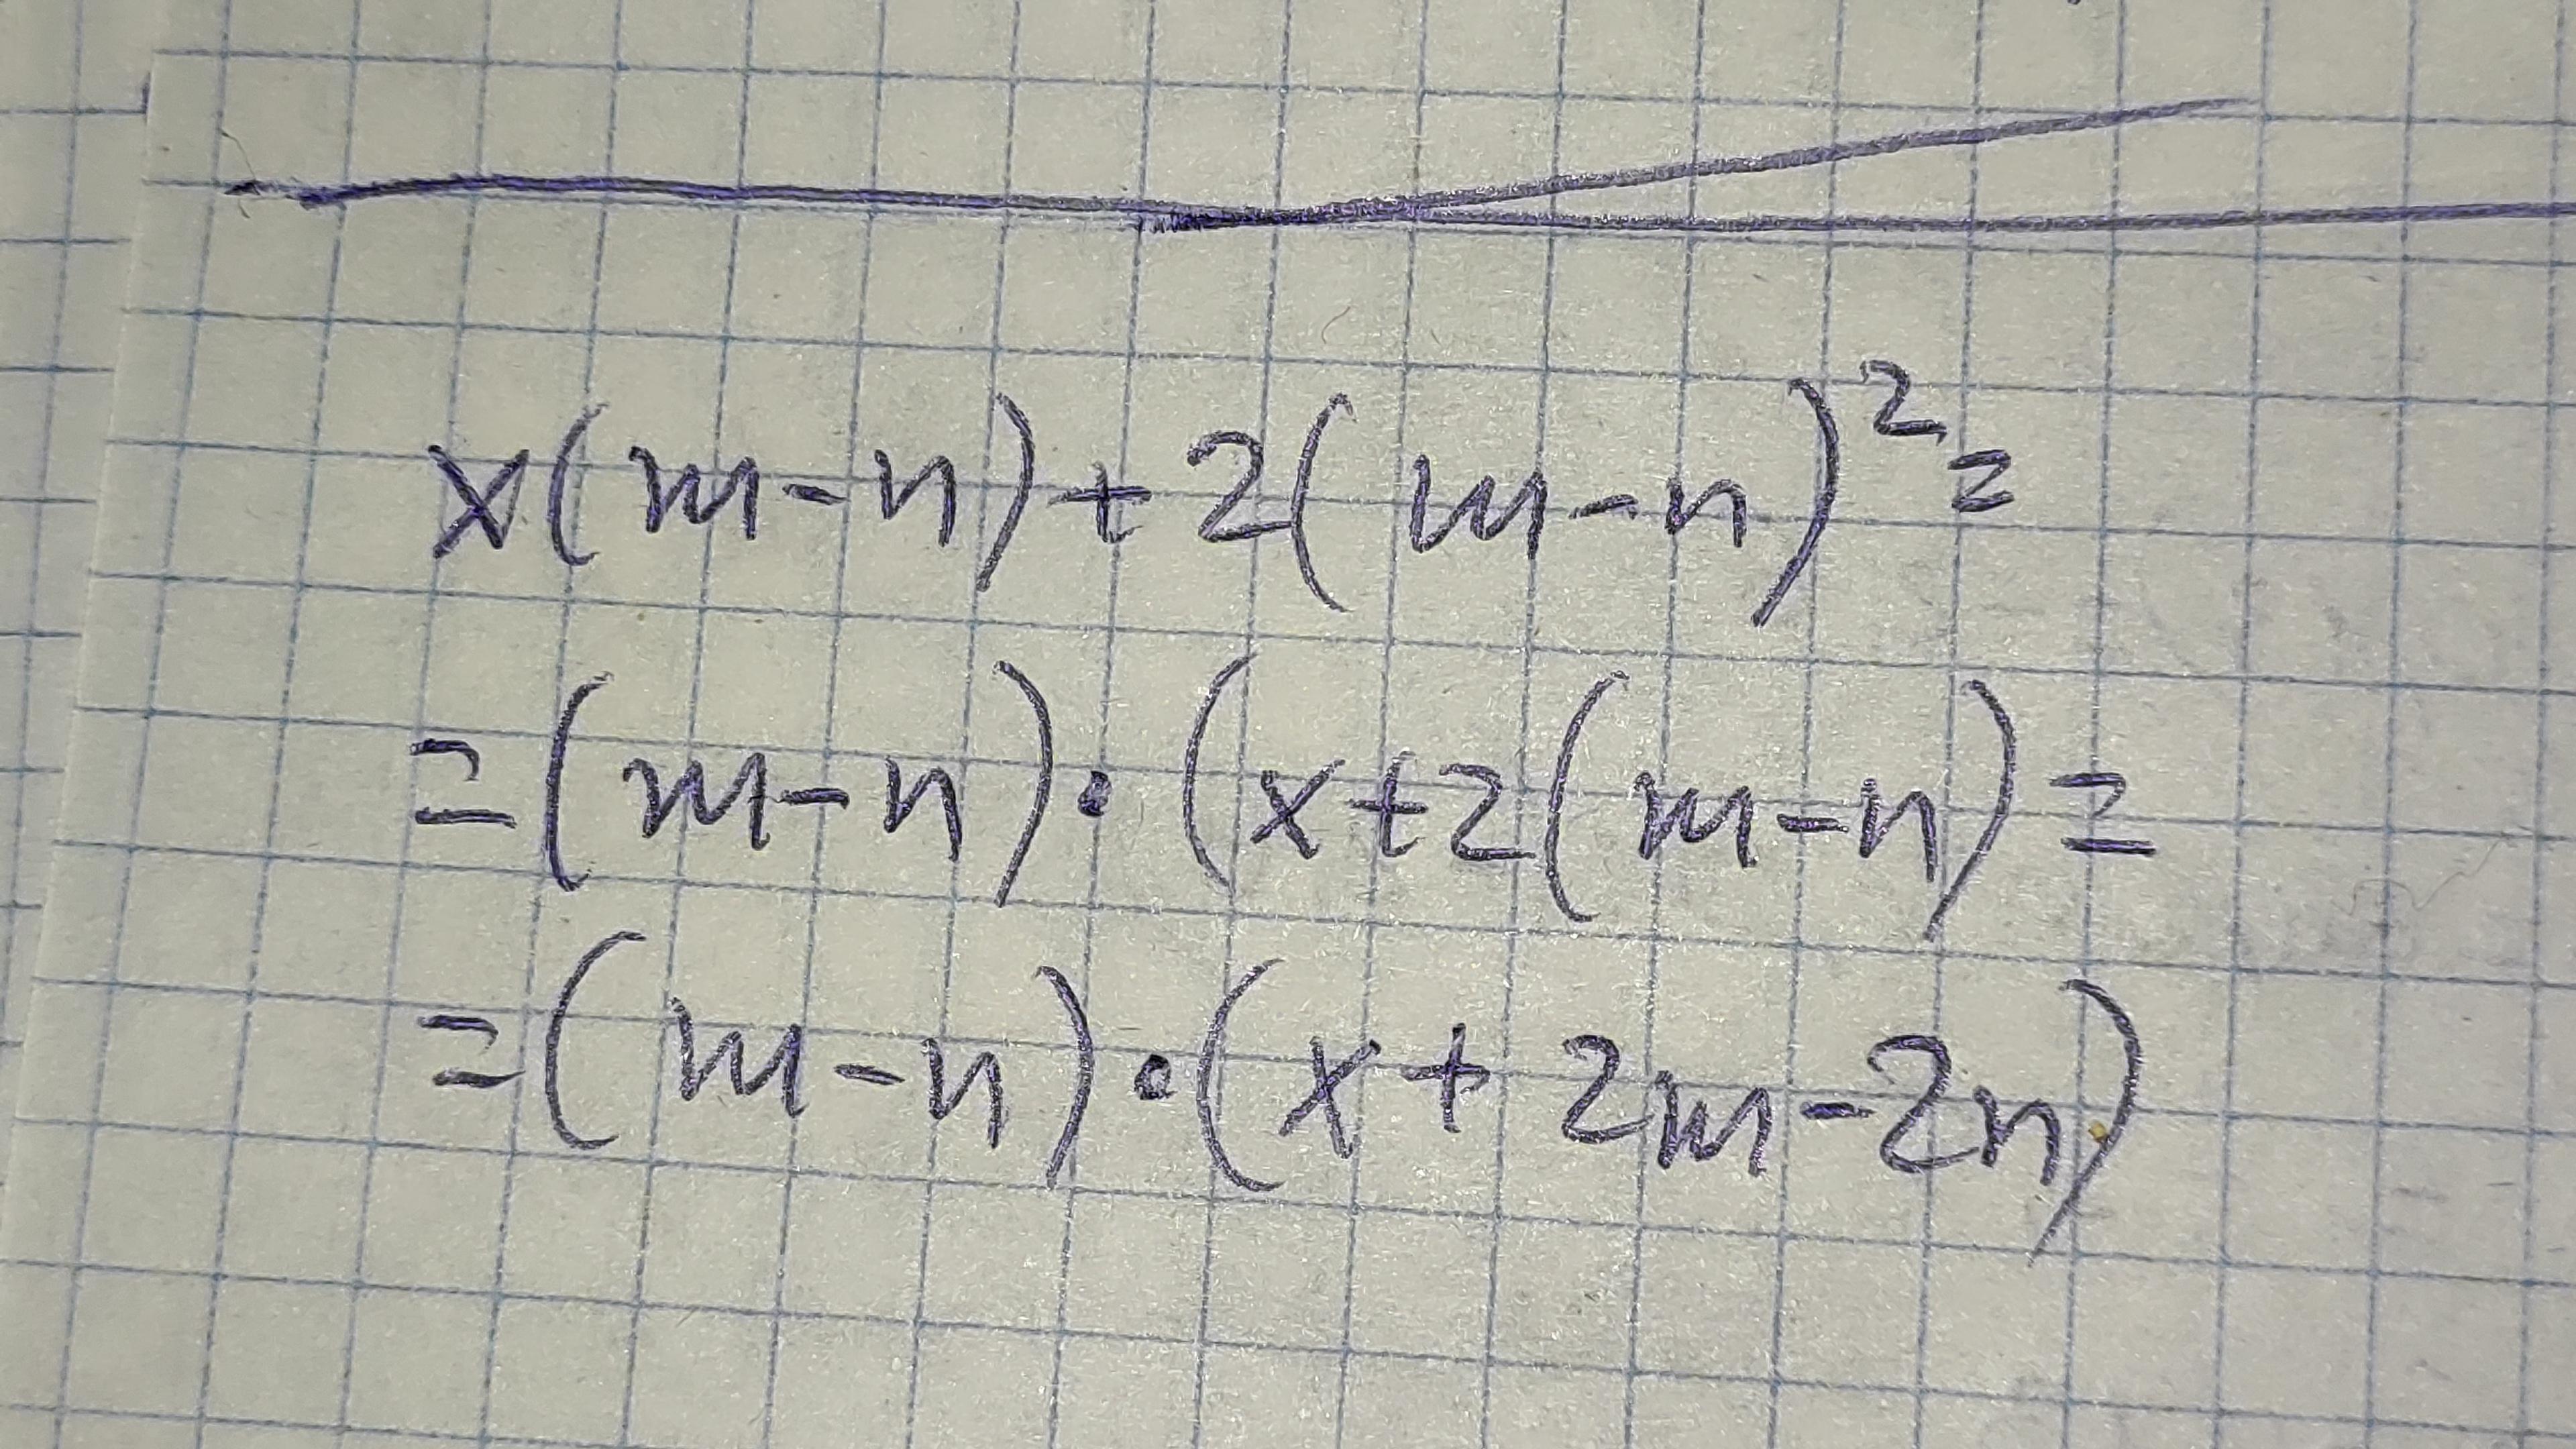 x(m-n)+2(m-n)²=
=(m-n)·(x+2(m-n)=
=(m-n)·(x+2m-2n)